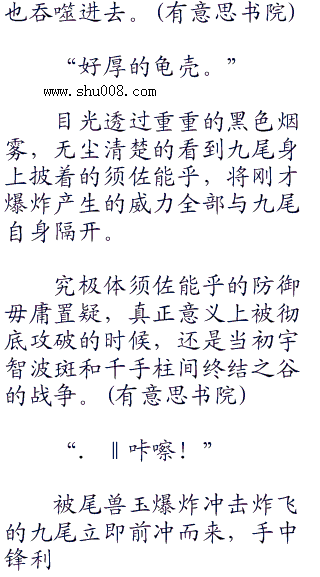 也吞噬进去。(有意思书院)
“好厚的龟壳。”
www.shu008.com
目光透过重重的黑色烟
雾，无尘清楚的看到九尾身
上披着的须佐能乎，将刚才
爆炸产生的威力全部与九尾
自身隔开。
究极体须佐能乎的防御
毋庸置疑，真正意义上被彻
底攻破的时候，还是当初宇
智波斑和千手柱间终结之谷
的战争。(有意思书院)
“．‖咔嚓！”
被尾兽玉爆炸冲击炸飞
的九尾立即前冲而来，手中
锋利